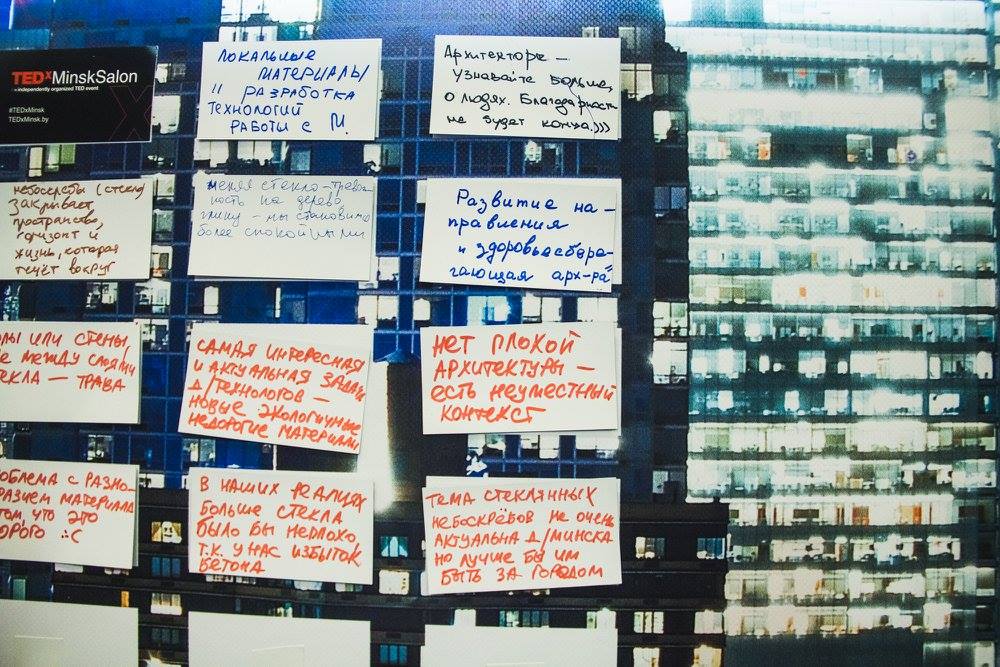 TEDxMinskSalon
independently organized TED event
#TEDxMinsk
TEDxMinsk.by
ЛОКАЛЬНЫЕ
МАТЕРИАЛЫ
РАЗРАБОТКА
ТЕХНОЛОГИЙ
РАБОТЫ С М.
Архитекторы –
узнавайте больше
о людях. Благодарности
не будет конца.)))
небоскрёбы (стекло)
закрывает
пространство,
горизонт и
жизнь, которая
течёт вокруг
меняя стекло – прозрач
ность на дерево,
глину – мы становимся
более спокойными
Развитие на-
правления
"здоровьесбере-
гающая арх-ра"
ИЛИ СТЕНЫ,
МЕЖДУ СЛОЯМИ
— ТРАВА
САМАЯ ИНТЕРЕСНАЯ
И АКТУАЛЬНАЯ ЗАДАЧА
Д/ТЕХНОЛОГОВ –
НОВЫЕ ЭКОЛОГИЧНЫЕ
НЕДОРОГИЕ МАТЕРИАЛЫ
НЕТ ПЛОХОЙ
АРХИТЕКТУРЫ –
ЕСТЬ НЕУМЕСТНЫЙ
КОНТЕКСТ
С РАЗНО-
МАТЕРИАЛА
ЧТО ЭТО
:С
В НАШИХ РЕАЛИЯХ
БОЛЬШЕ СТЕКЛА
БЫЛО БЫ НЕПЛОХО,
Т.К. У НАС ИЗБЫТОК
БЕТОНА
ТЕМА СТЕКЛЯННЫХ
НЕБОСКРЁБОВ НЕ ОЧЕНЬ
АКТУАЛЬНА Д/МИНСКА
НО ЛУЧШЕ БЫ ИМ
БЫТЬ ЗА ГОРОДОМ